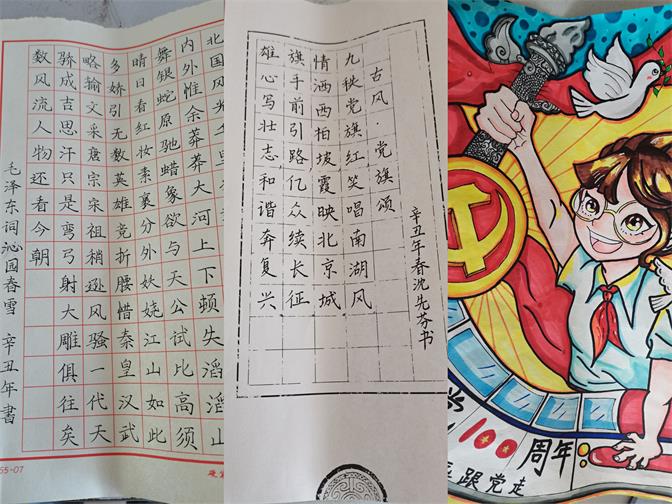 北国风
内外惟余莽莽大河上下顿失滔滔山
舞银蛇原驰蜡象欲与天公试比高须
晴日看红妆素裹分外妖娆江山如此
多娇引无数英雄竞折腰惜秦皇汉武
略输文采唐宗宋祖稍逊风骚一代天
骄成吉思汗只是弯弓射大雕俱往矣
数风流人物还看今朝
毛泽东词沁园春雪 辛丑年书
55-07
辛丑年春沈先芬书
古风·党旗颂
九秩党旗红笑唱南湖风
情洒西柏坡霞映北京城
旗手前引路亿众续长征
雄心写壮志和谐奔复兴
100周年
跟党走